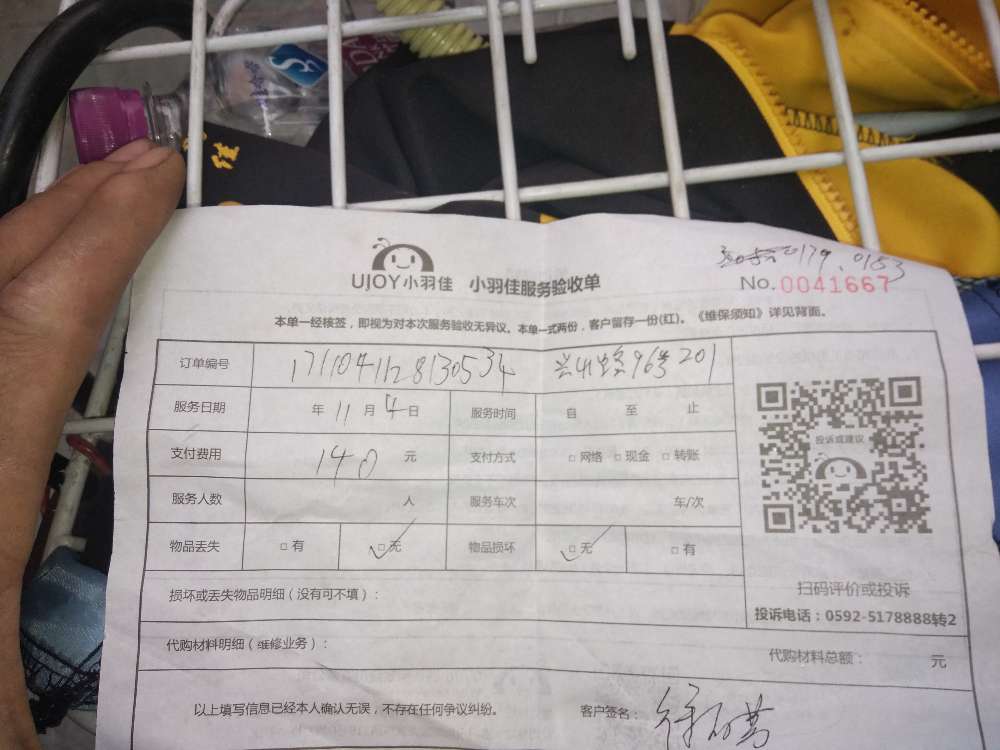 0179、0153
UJOY小羽佳 小羽佳服务验收单
No.0041667
本单一经核签，即视为对本次服务验收无异议。本单一式两份，客户留存一份(红)。《维保须知》详见背面。
订单编号 1711041128130534 兴山路96号201
服务日期 年11月4日 服务时间 自 至 止
支付费用 140元 支付方式 □网络 □现金 □转账
服务人数 人 服务车次 车/次
物品丢失 □有 □无 物品损坏 □无 □有
投诉或建议
扫码评价或投诉
投诉电话：0592-5178888转2
损坏或丢失物品明细（没有可不填）：
代购材料明细（维修业务）： 代购材料总额： 元
以上填写信息已经本人确认无误，不存在任何争议纠纷。 客户签名：